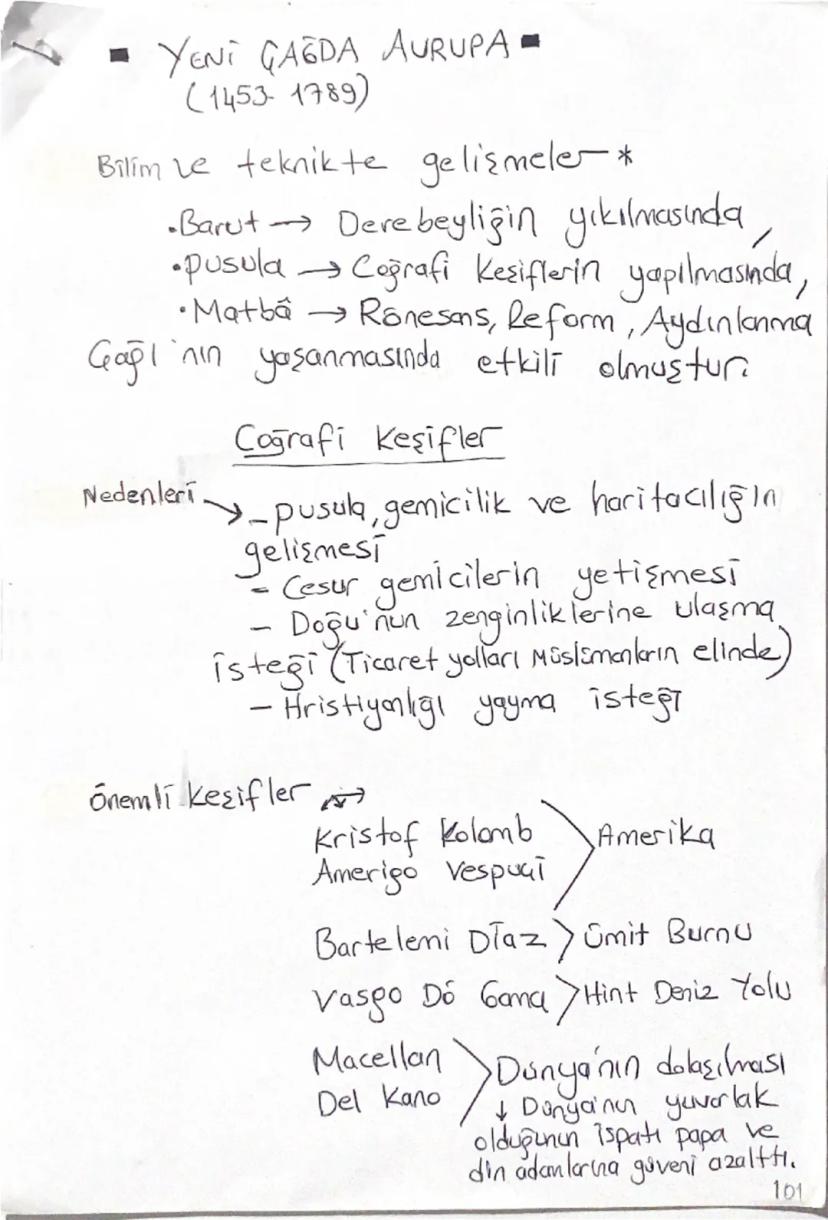 - YENİ ÇAĞDA AVRUPA -
(1453-1789)
Bilim ve teknikte gelişmeler *
•Barut → Derebeyliğin yıkılmasında,
•pusula → Coğrafi Keşiflerin yapılmasında,
•Matbâ → Rönesans, Reform, Aydınlanma
Çağı'nın yaşanmasında etkili olmuştur.
Coğrafi Keşifler
Nedenleri → - pusula, gemicilik ve haritacılığın
gelişmesi
- Cesur gemicilerin yetişmesi
- Doğu'nun zenginliklerine ulaşma
isteği (Ticaret yolları Müslümanların elinde)
- Hristiyanlığı yayma isteği
Önemli keşifler →
Kristof Kolomb
Amerigo Vespuçi > Amerika
Bartelemi Diaz > Ümit Burnu
Vasgo Dö Gama > Hint Deniz Yolu
Macellan
Del Kano > Dünya'nın dolaşılması
↓ Dünya'nın yuvarlak
olduğunun ispatı papa ve
din adamlarına güveni azalttı.
101